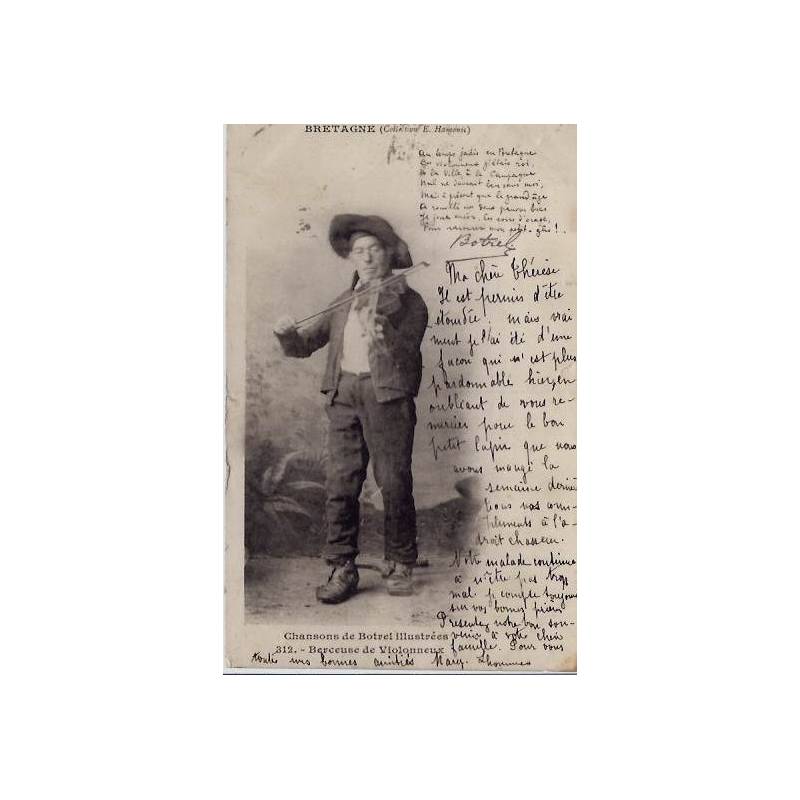 BRETAGNE (Collection E. Hamonic)
Au temps jadis en Bretagne
Les violonneux étaient roi,
à la Ville, à la Campagne
Nul ne dansait sans moi,
Mais à présent que le grand âge
a rouillé mes deux pauvres bras
Je joue encor,
Pour !
Botrel
Ma chère Thérèse
Il est permis d'être
étourdie. mais vrai
ment je l'ai été d'une
façon qui n'est plus
pardonnable hier, en
oubliant de vous re-
mercier pour le bon
petit lapin que nous
avons mangé la
semaine derniè
tous nos com-
pliments à l'a-
droit chasseur.
Notre malade continue
à n'être pas trop
mal je compte toujours
sur vos bonnes prièr
Présentez notre bon sou-
venir à votre chère
famille. Pour vous
toute mes bonnes amitiés Mary.
Chansons de Botrel illustrées
312. - Berceuse de Violonneux